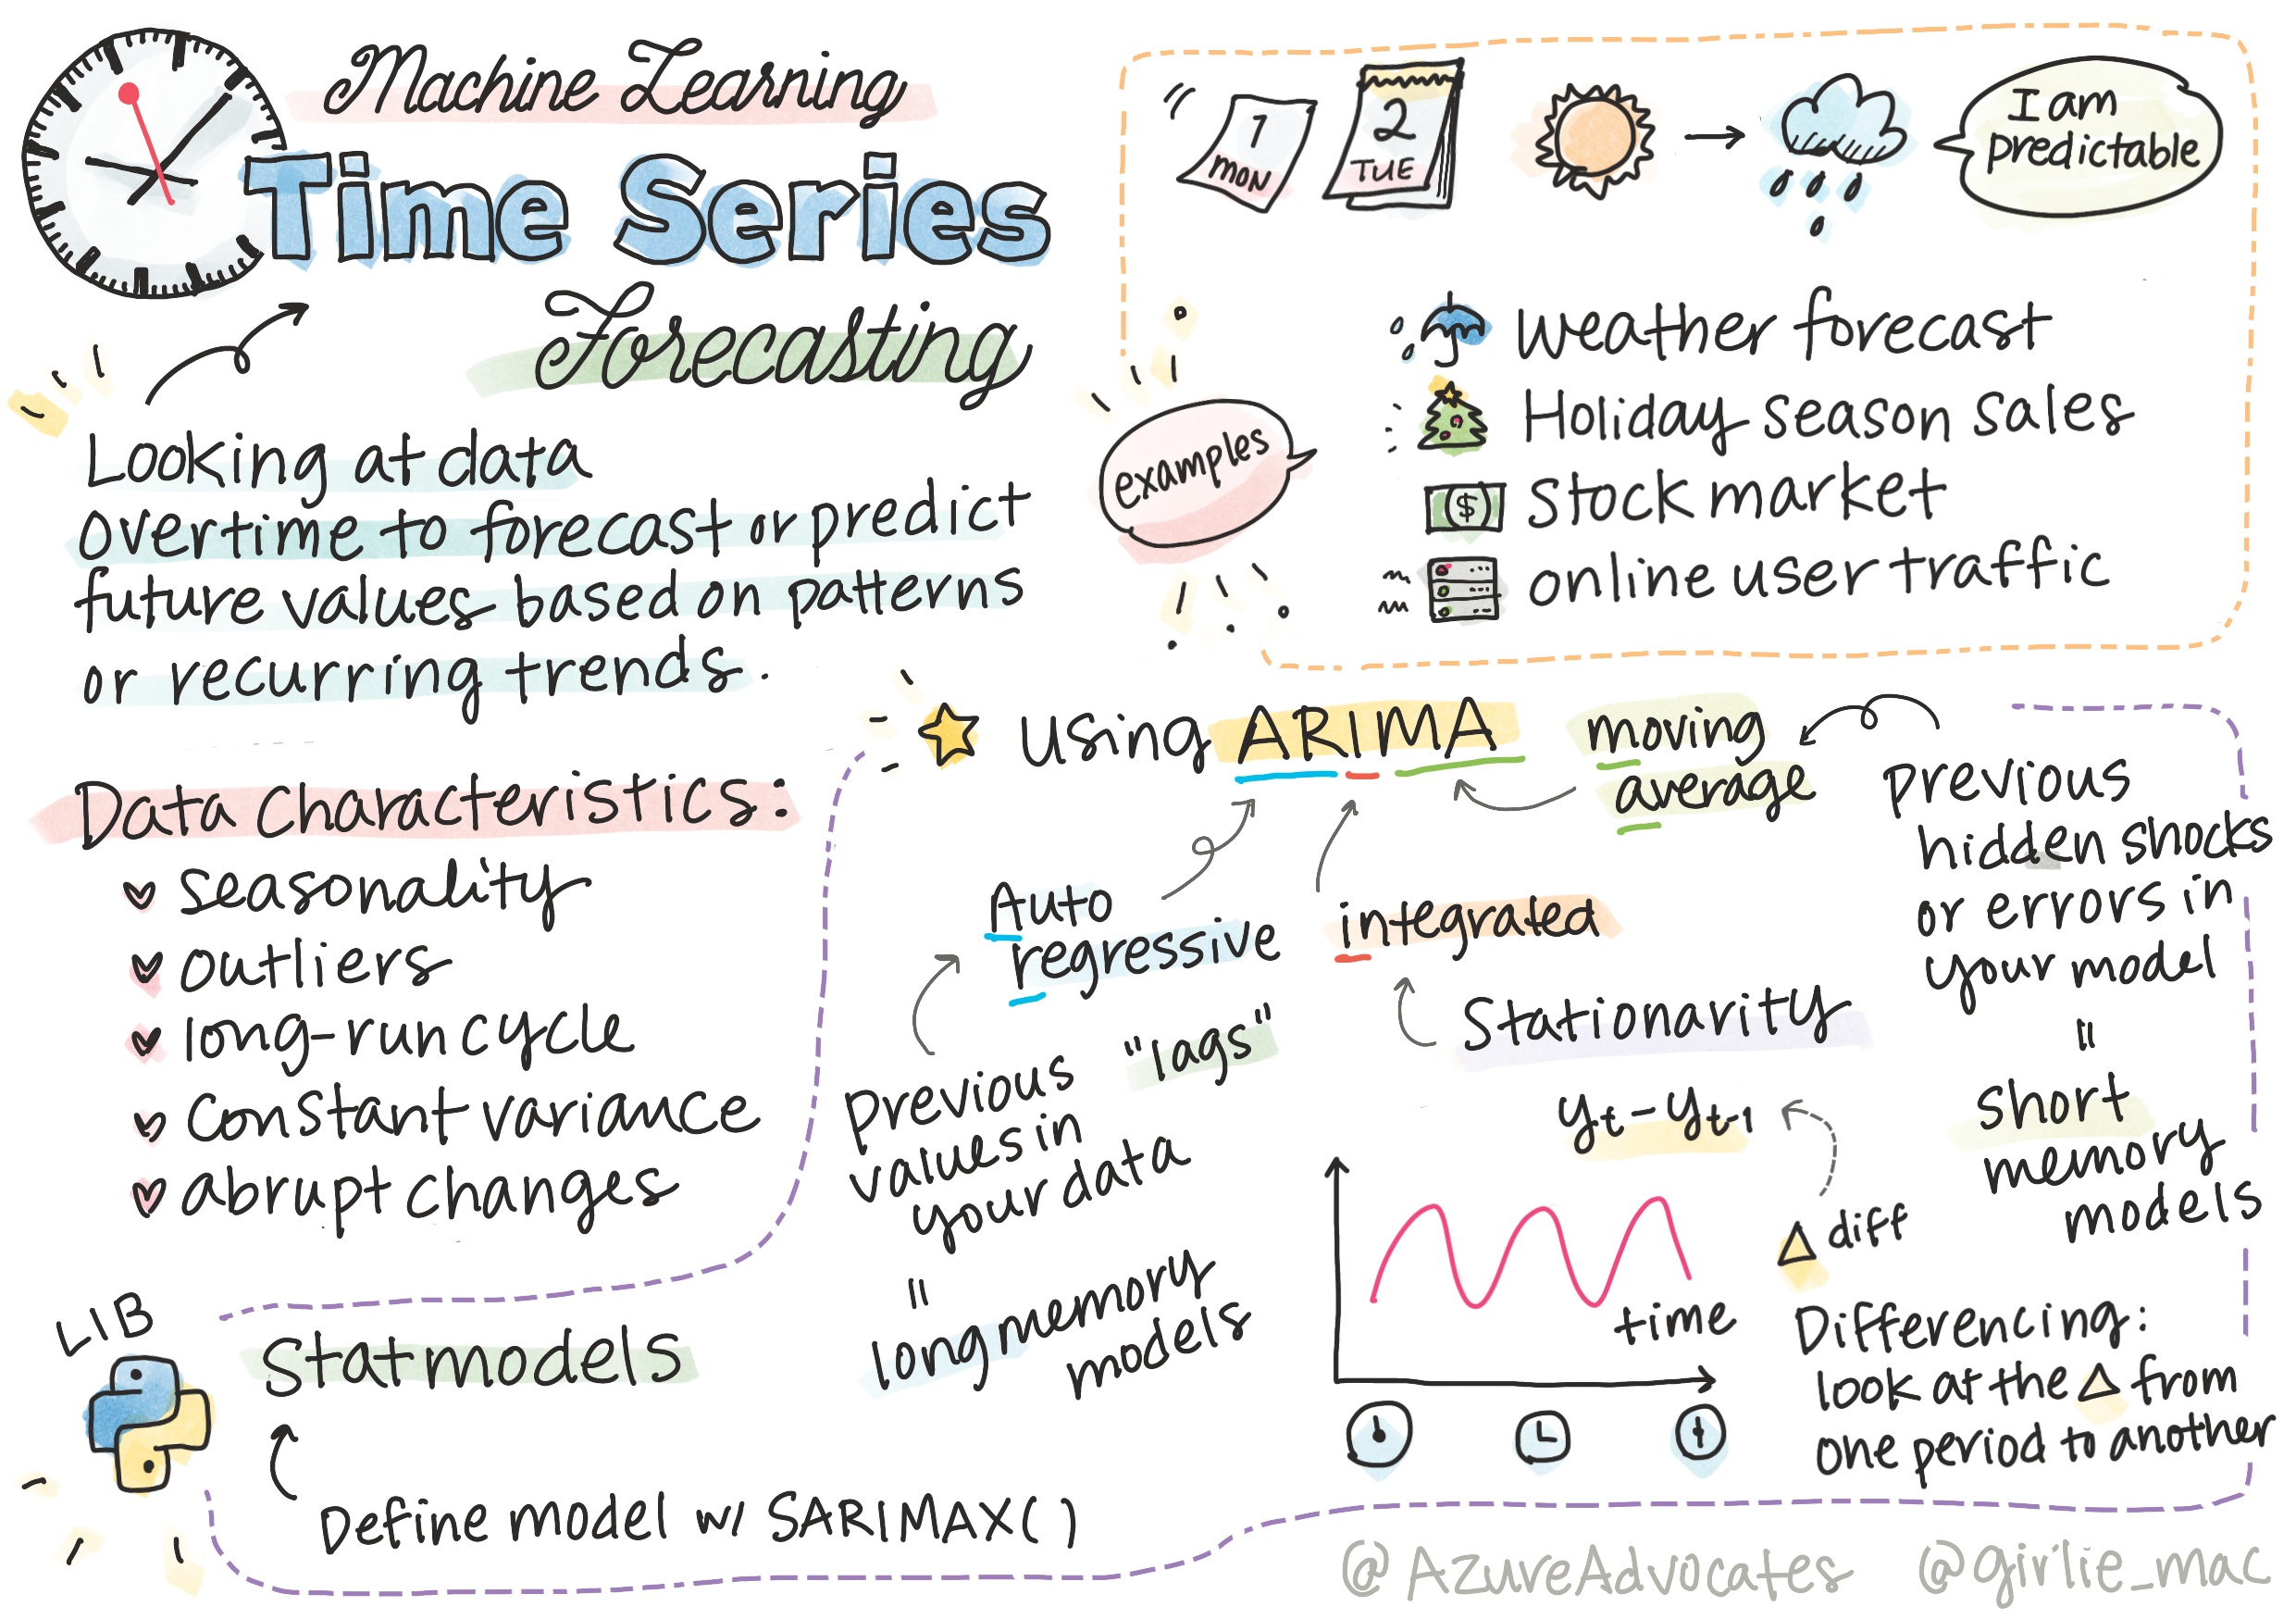 Machine Learning
Time Series
Forecasting
Looking at data
overtime to forecast or predict
future values based on patterns
or recurring trends.
1
MON
2
TUE
I am
predictable
examples
weather forecast
Holiday season sales
$ stock market
online user traffic
Data Characteristics:
seasonality
outliers
long-run cycle
constant variance
abrupt changes
using ARIMA
moving
average
previous
hidden shocks
or errors in
your model
=
short
memory
models
Auto
regressive
integrated
Previous "lags"
values in
your data
=
long memory
models
Stationarity
yt - yt-1
Δ diff
time
Differencing:
look at the Δ from
one period to another
LIB
Statmodels
Define model w/ SARIMAX()
@AzureAdvocates @girlie_mac